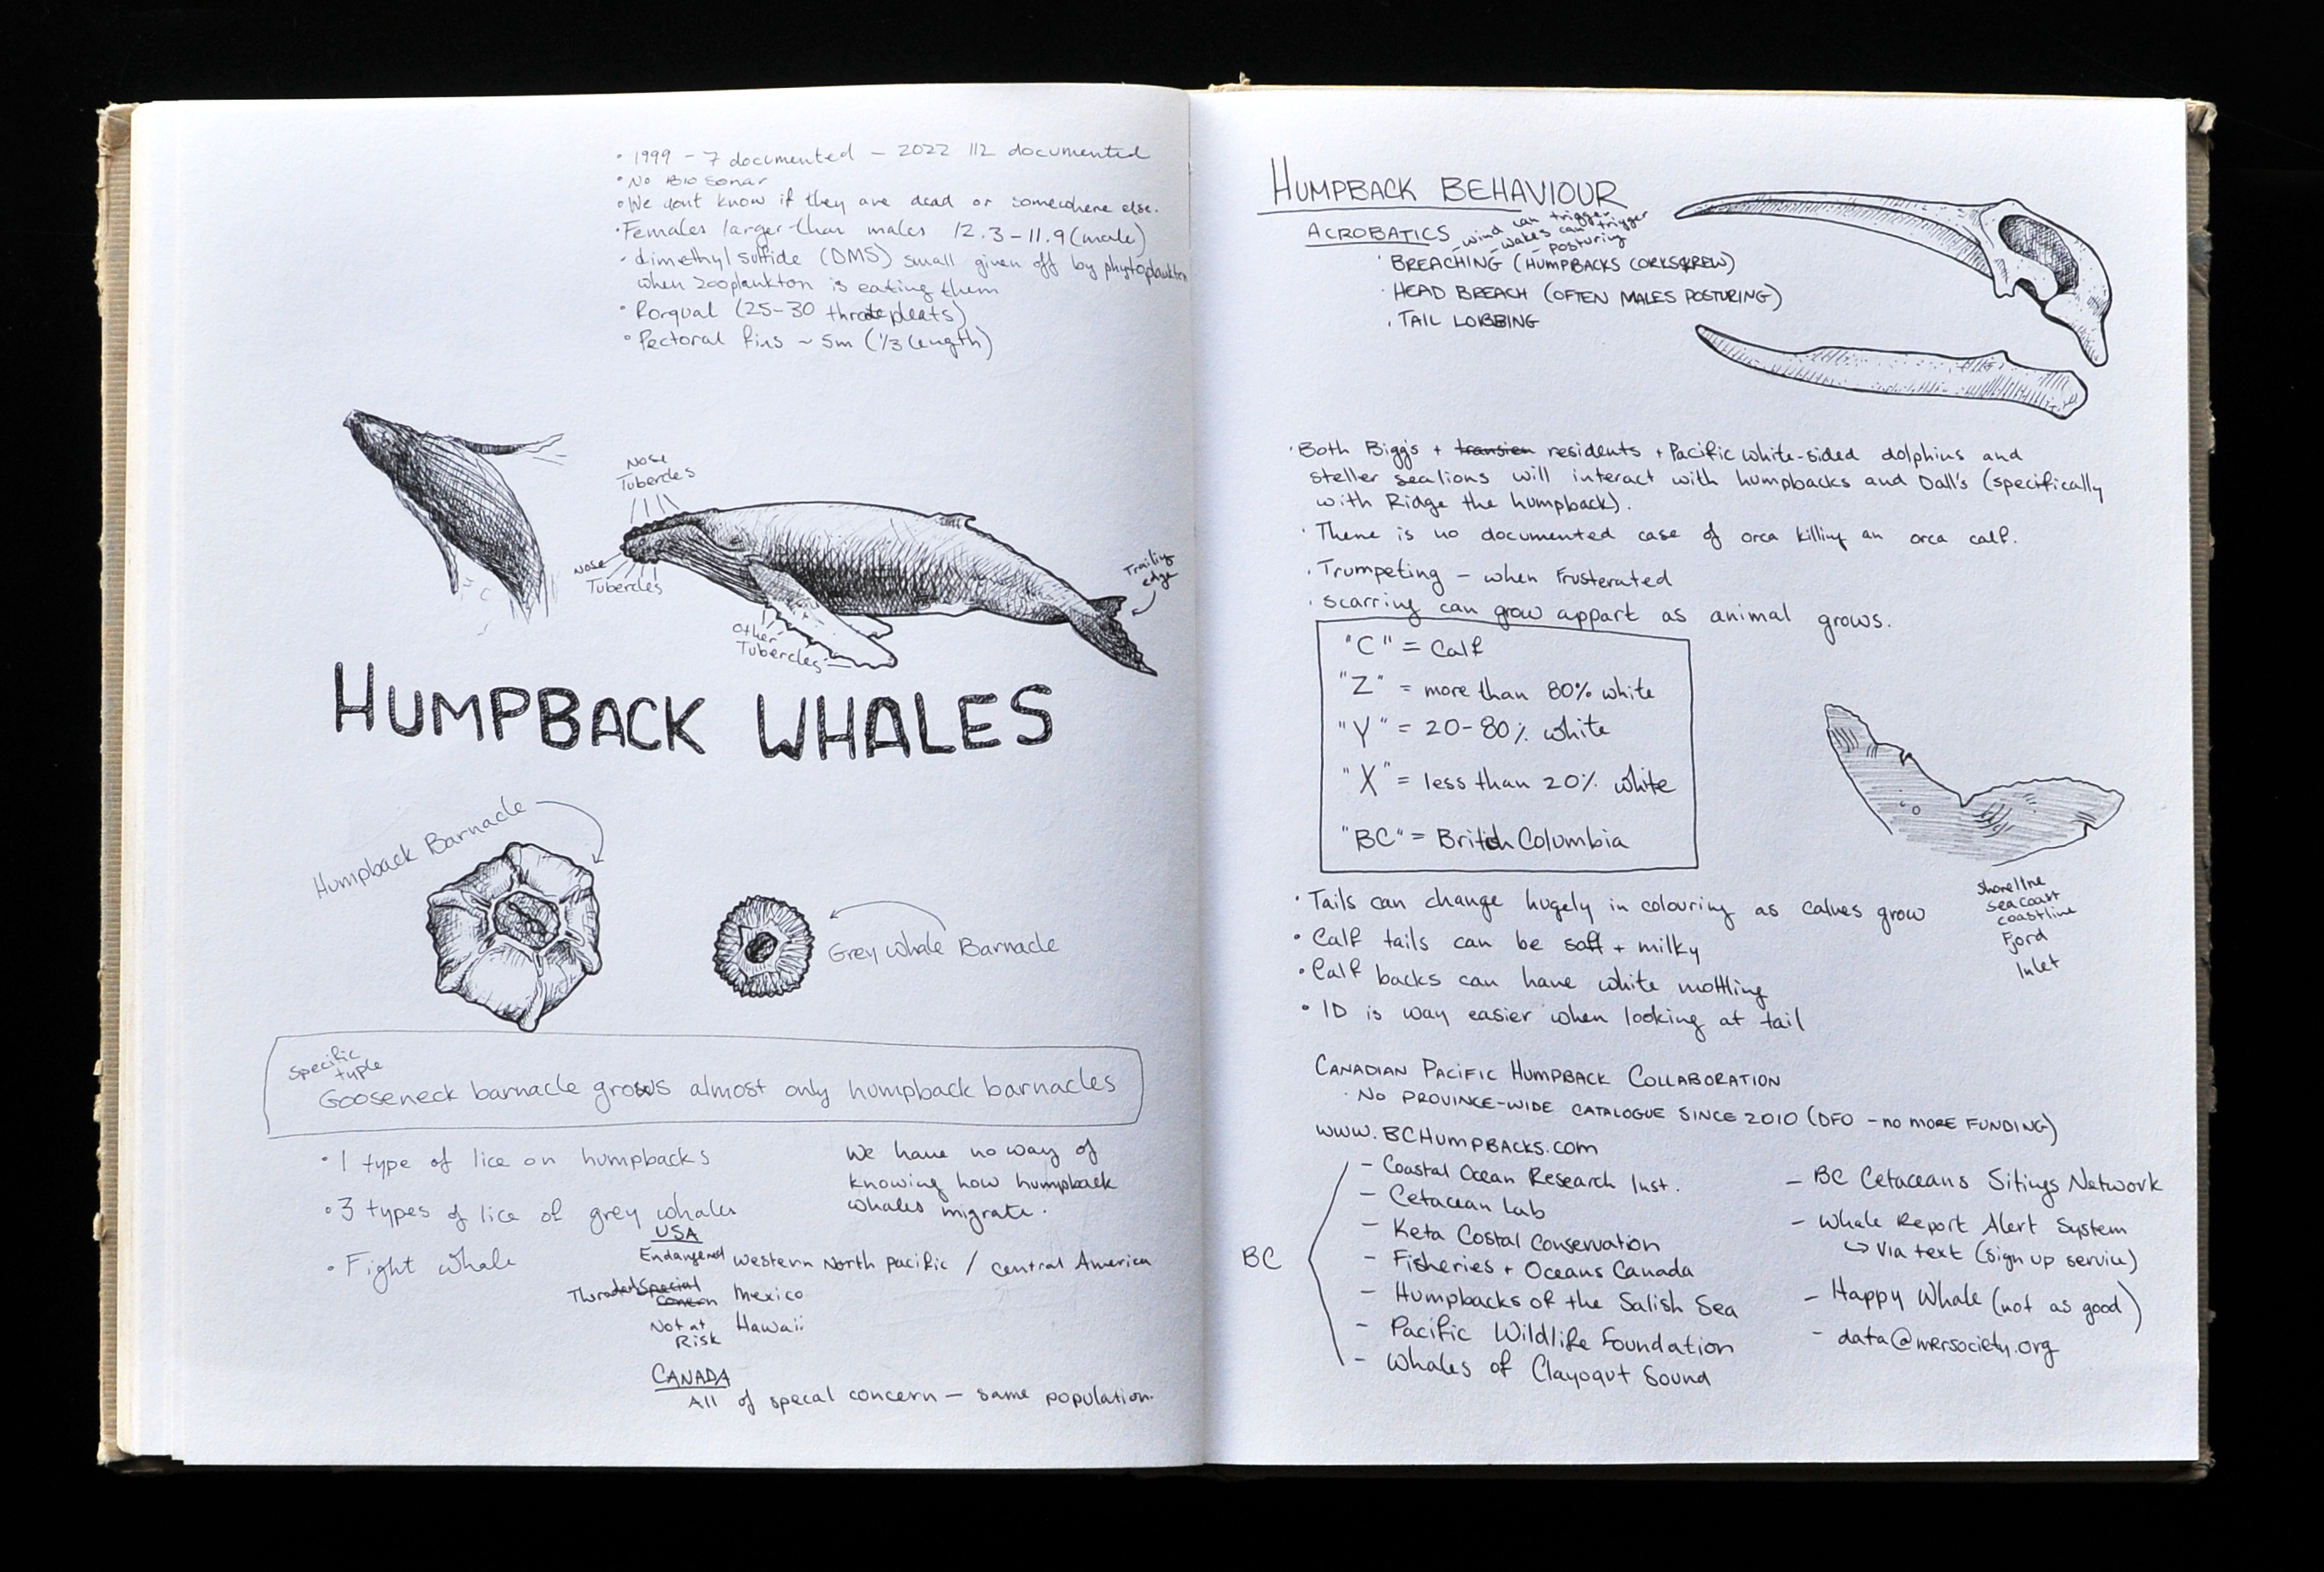 • 1999 – 7 documented – 2022 112 documented
• No Bio Sonar
• We dont know if they are dead or somewhere else.
• Females larger than males 12.3 – 11.9 (male)
• dimethyl sulfide (DMS) small given off by phytoplankton
when zooplankton is eating them
• Rorqual (25-30 throte pleats)
• Pectoral fins ~ 5m (1/3 length)
Nose
Tubercles
Nose
Tubercles
Other
Tubercles
Trailing
edge
HUMPBACK WHALES
Humpback Barnacle
Grey Whale Barnacle
Specific
typle
Gooseneck barnacle grows almost only humpback barnacles
• 1 type of lice on humpbacks
• 3 types of lice of grey whales
• Fight whale
We have no way of
knowing how humpback
whales migrate.
USA
Endangered Western North Pacific / Central America
Special Mexico
Concern
Not at Hawaii
Risk
CANADA
All of specal concern – same population.
HUMPBACK BEHAVIOUR
ACROBATICS
- wind can trigger
- wakes can trigger
- posturing
• BREACHING (HUMPBACKS CORKSKREW)
• HEAD BREACH (OFTEN MALES POSTURING)
• TAIL LOBBING
• Both Bigg's + transien residents + Pacific white-sided dolphins and
steller sealions will interact with humpbacks and Dall's (specifically
with Ridge the humpback).
• There is no documented case of orca killing an orca calf.
• Trumpeting – when frusterated
• Scarring can grow appart as animal grows.
"C" = Calf
"Z" = more than 80% white
"Y" = 20-80% white
"X" = less than 20% white
"BC" = British Columbia
Shoreline
sea coast
coastline
Fjord
Inlet
• Tails can change hugely in colouring as calves grow
• Calf tails can be soft + milky
• Calf backs can have white mottling
• ID is way easier when looking at tail
CANADIAN PACIFIC HUMPBACK COLLABORATION
• NO PROVINCE-WIDE CATALOGUE SINCE 2010 (DFO - NO MORE FUNDING)
WWW.BCHUMPBACKS.COM
BC
- Coastal Ocean Research Inst.
- Cetacean Lab
- Keta Costal Conservation
- Fisheries + Oceans Canada
- Humpbacks of the Salish Sea
- Pacific Wildlife Foundation
- Whales of Clayoqut Sound
- BC Cetaceans Sitings Network
- Whale Report Alert System
↳ via text (sign up service)
- Happy Whale (not as good)
- data@mersociety.org